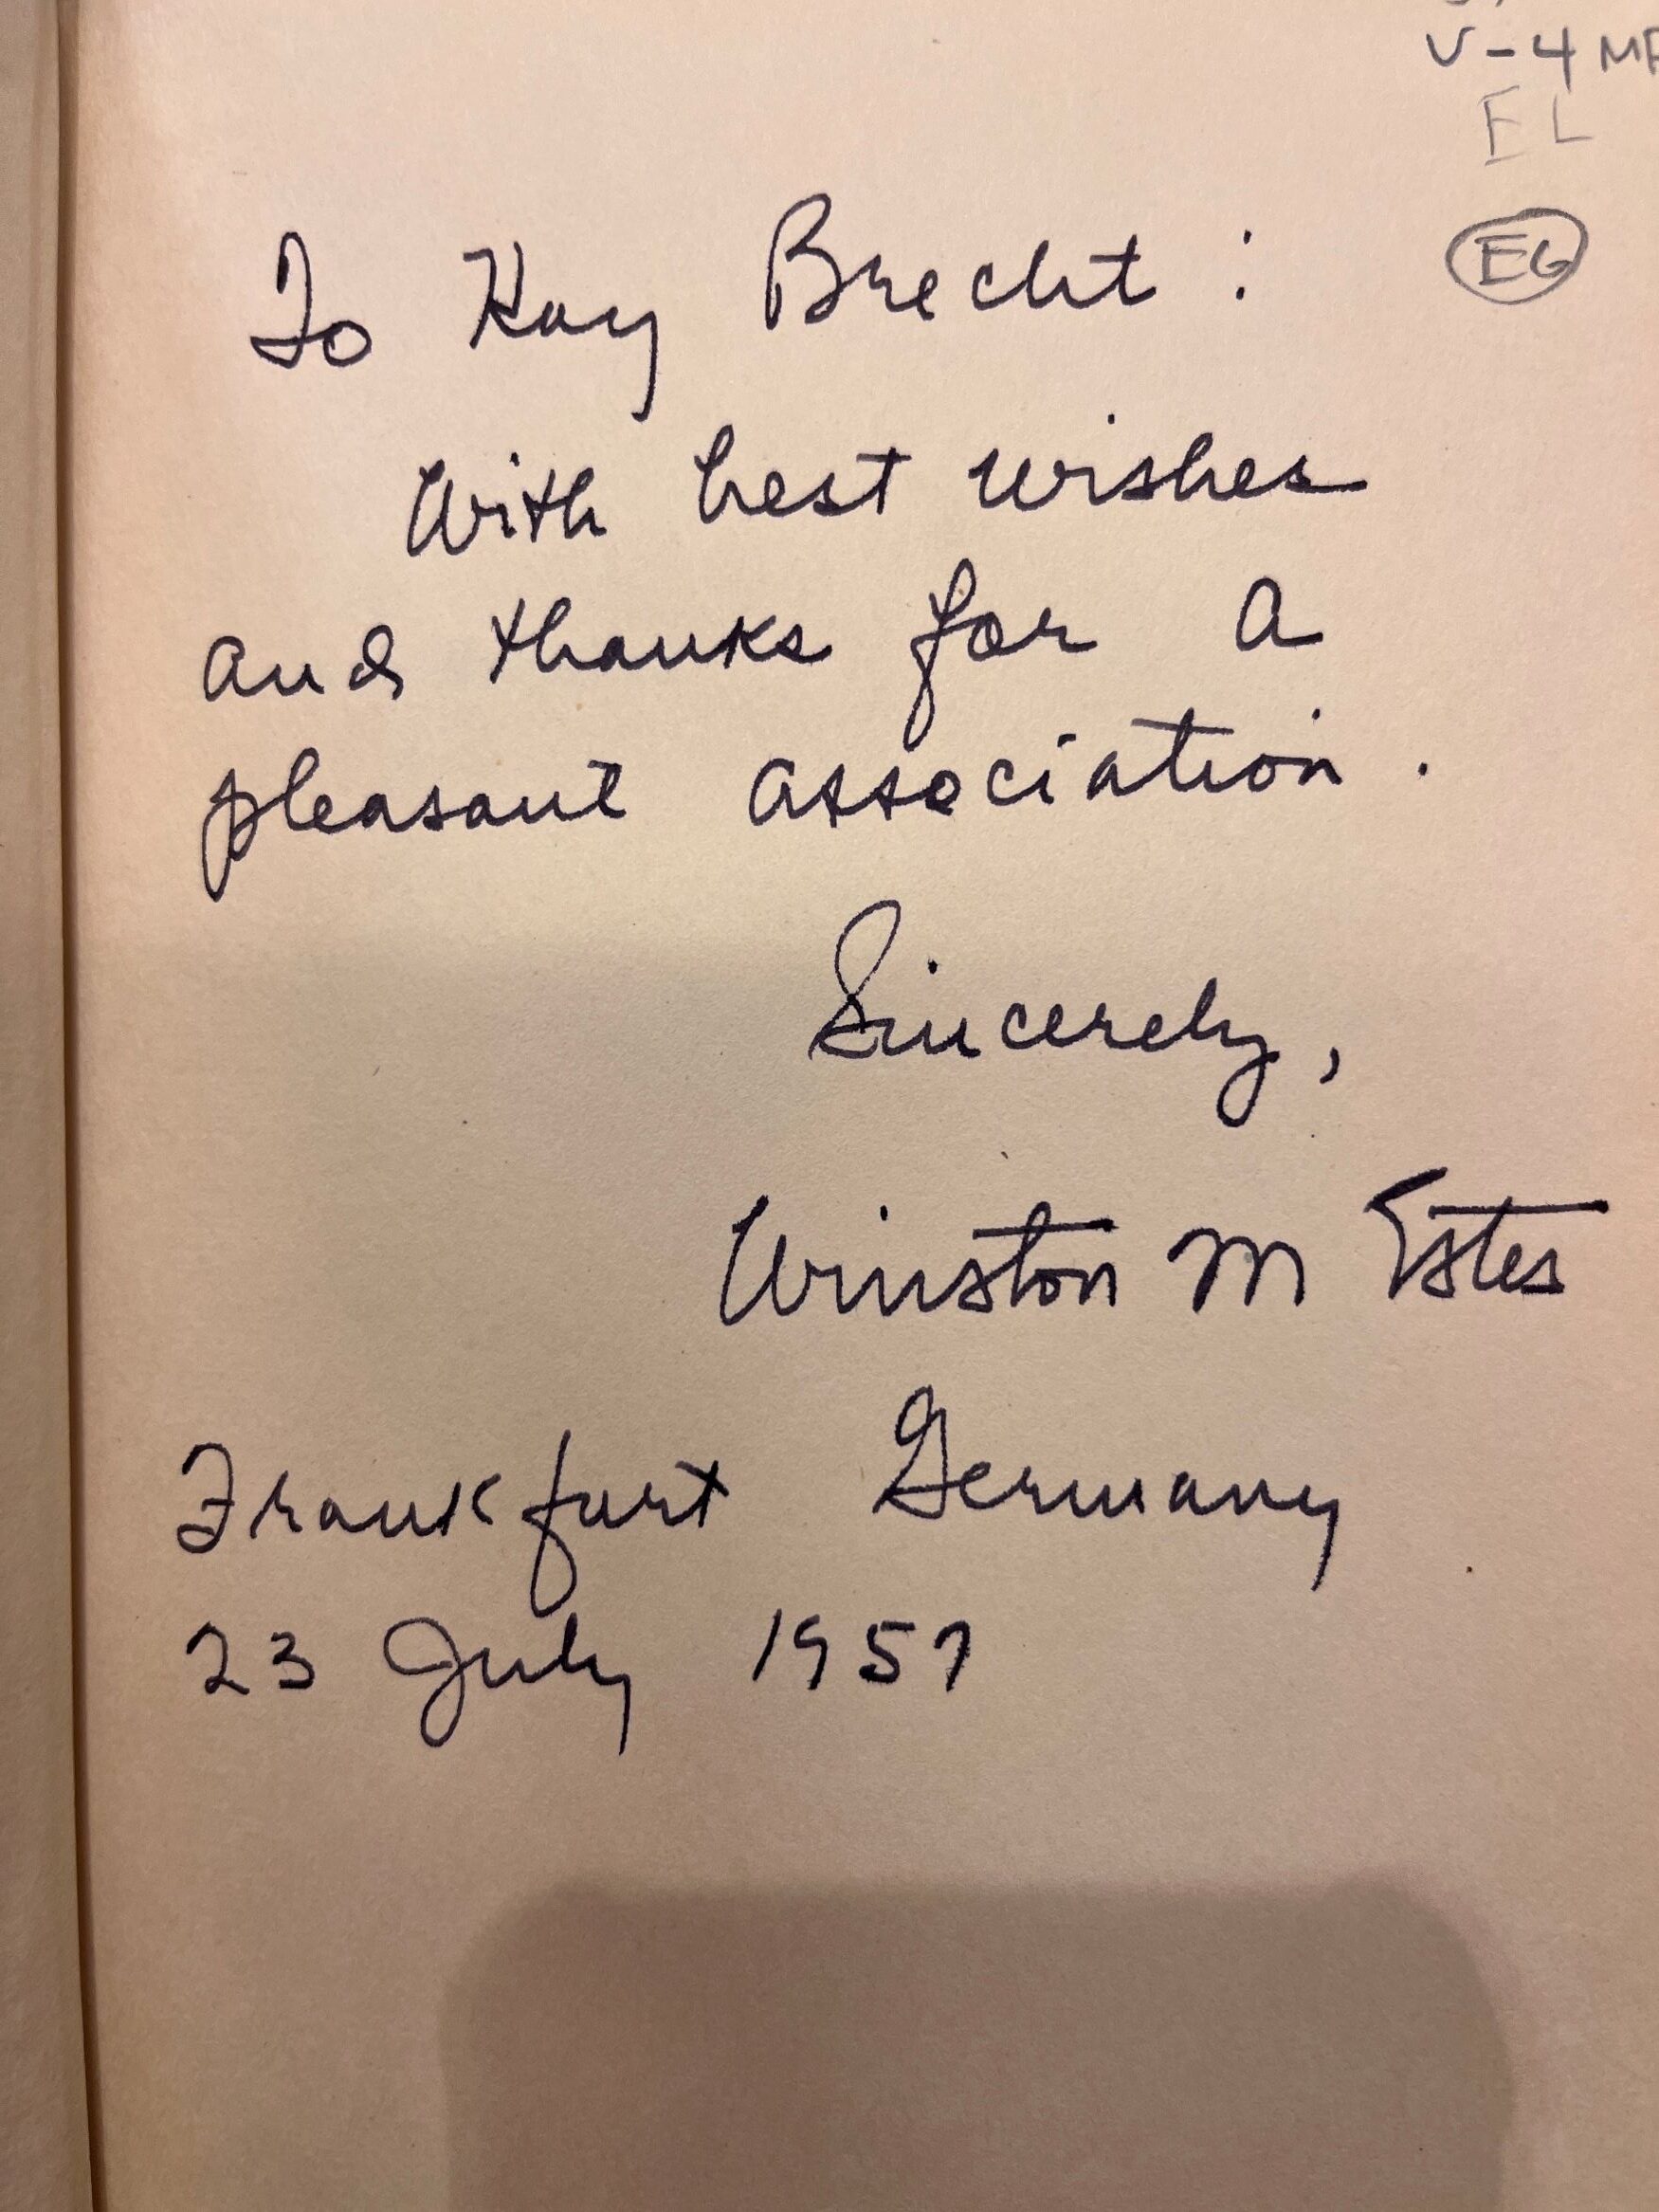 V-4
EL
EG
To Kay Brecht :
With best wishes
and thanks for a
pleasant association.
Sincerely,
Winston M Estes
Frankfurt Germany
23 July 1957